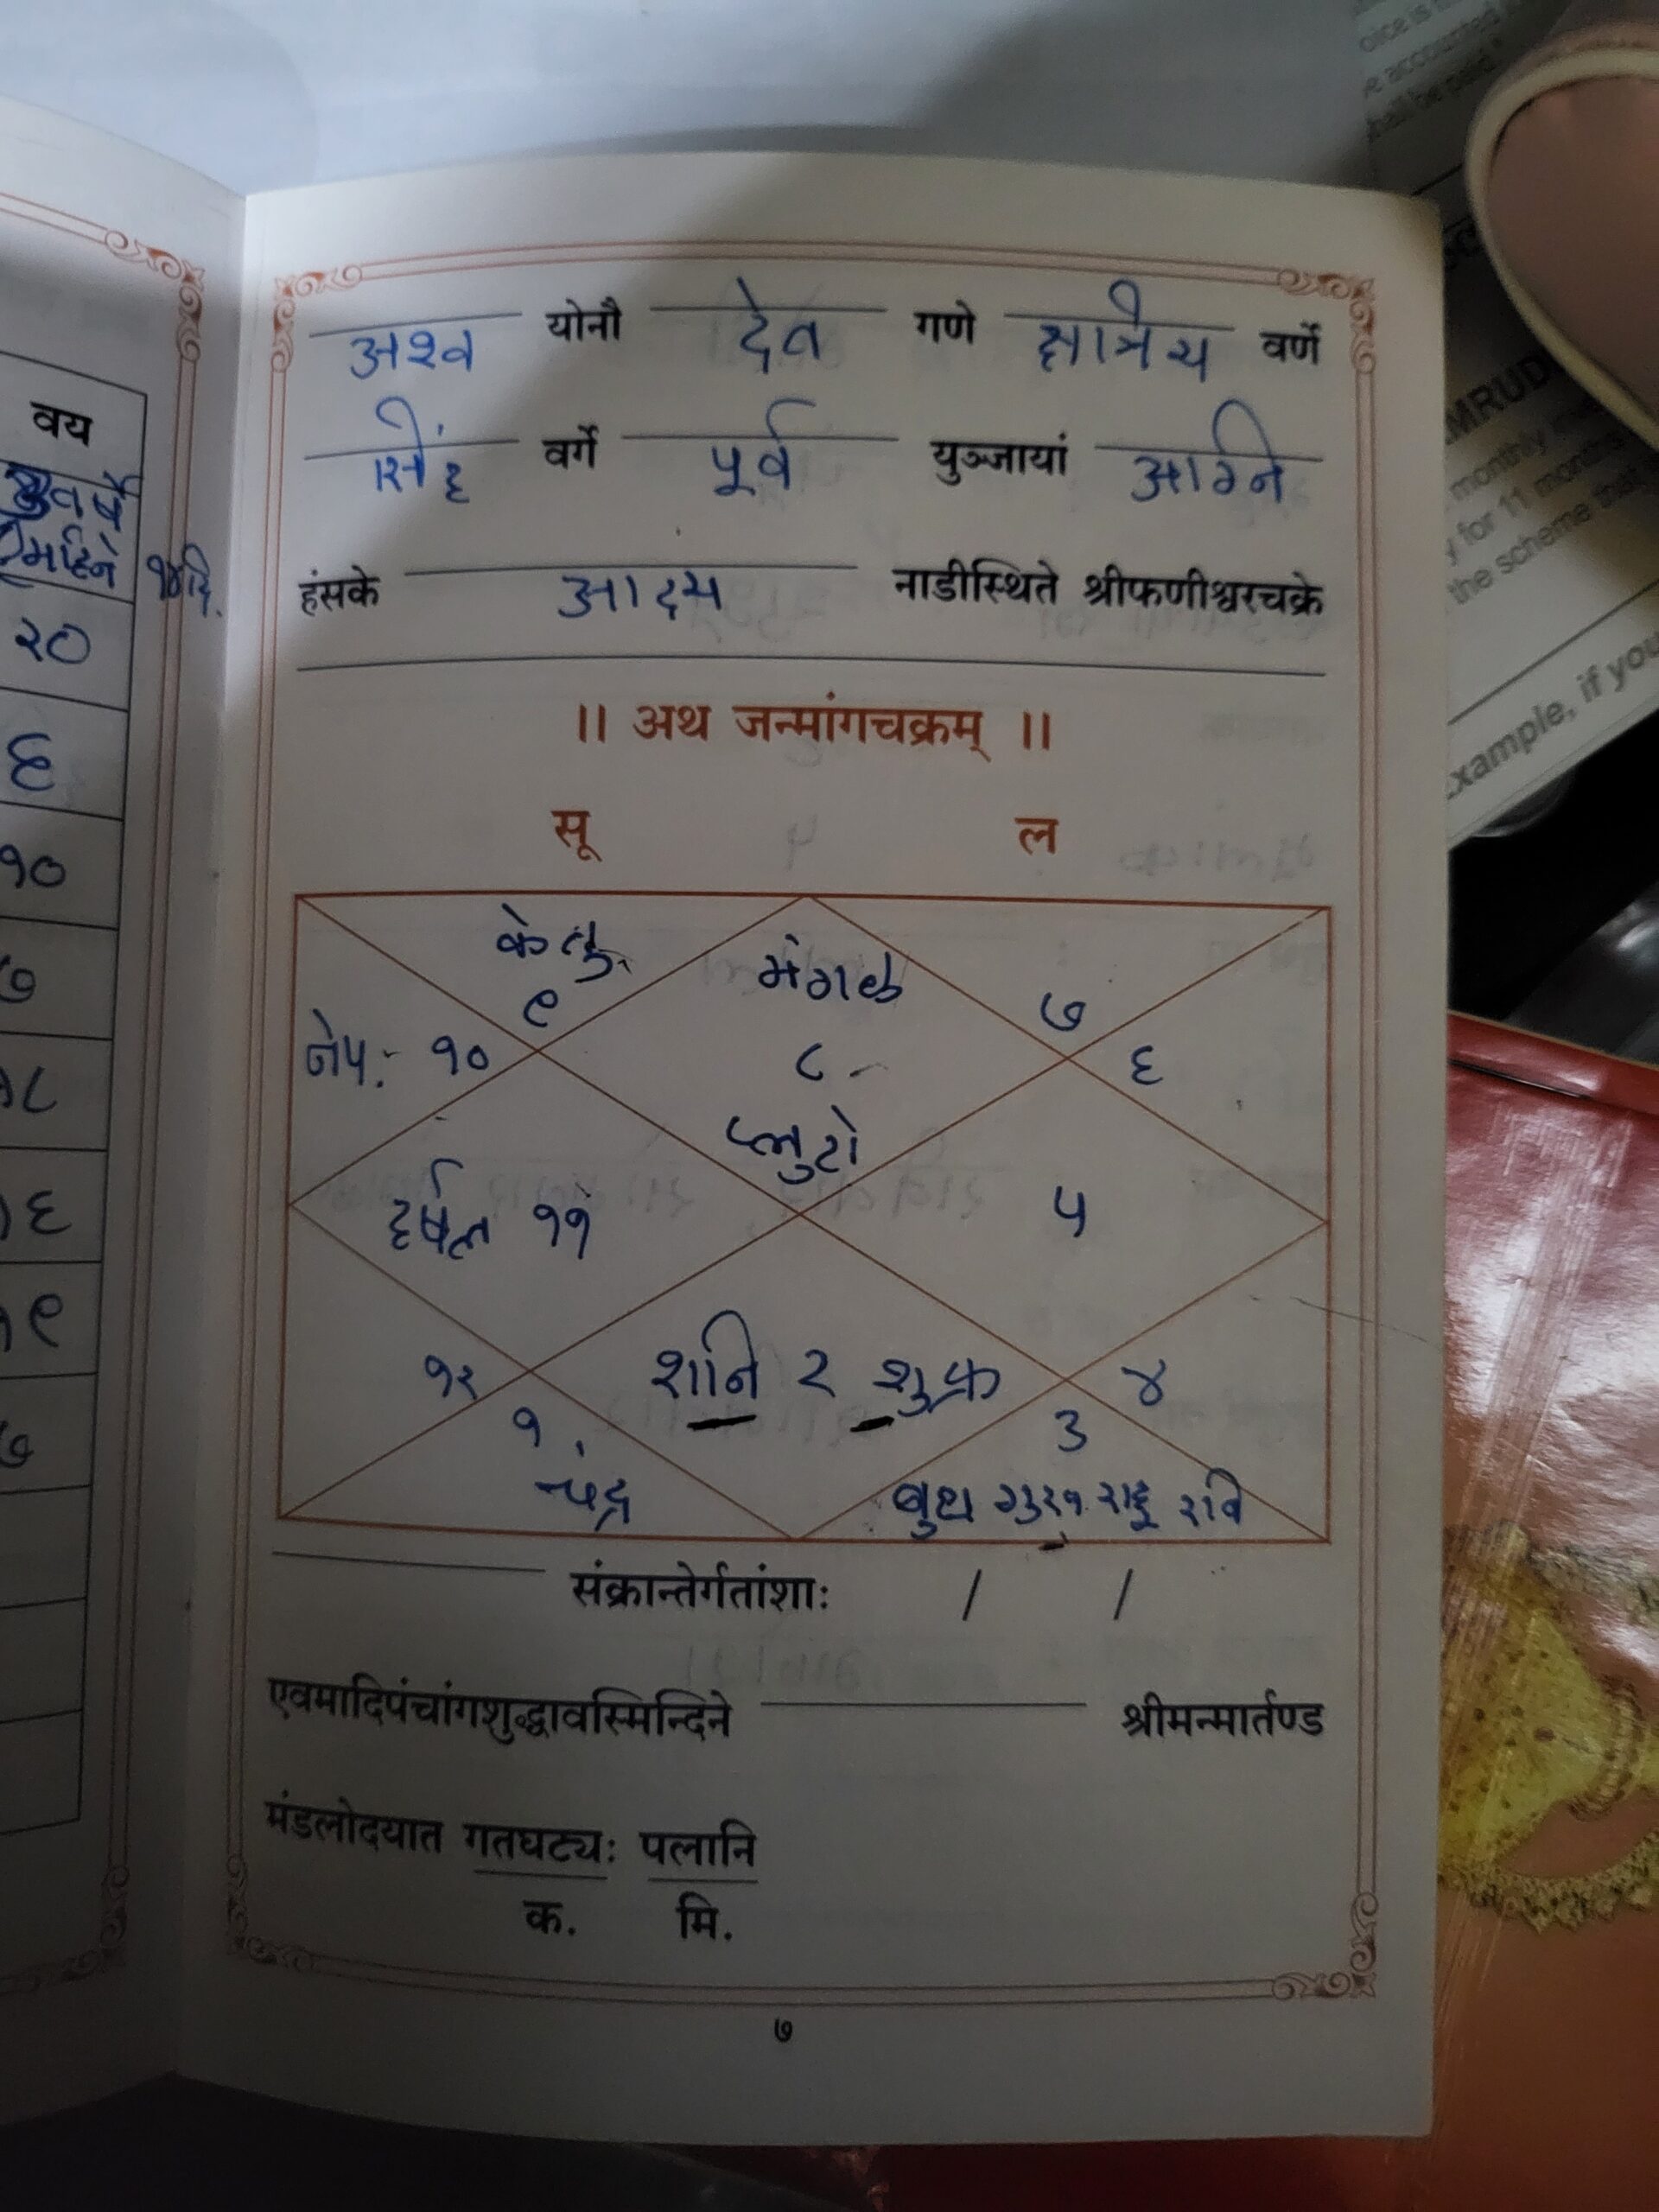 अश्व योनौ देव गणे क्षत्रिय वर्णे
सिंह वर्गे पूर्व युञ्जायां अग्नि
हंसके आद्य नाडीस्थिते श्रीफणीश्वरचक्रे
॥ अथ जन्मांगचक्रम् ॥
सू ल
केतु ९
मंगळ ८ प्लुटो
७
नेप. १०
६
हर्षल ११
५
१२
शनि २ शुक्र
४
१ चंद्र
३ बुध गुरु राहू रवि
संक्रान्तेर्गतांशाः / /
एवमादिपंचांगशुद्धावस्मिन्दिने श्रीमन्मार्तण्ड
मंडलोदयात गतघट्यः पलानि
क. मि.
७
वय
वर्षे
महिने १४ दि.
२०
६
१०
७
१८
१६
१९
७
MRUD
monthly
for 11 months
the scheme that
Example, if you